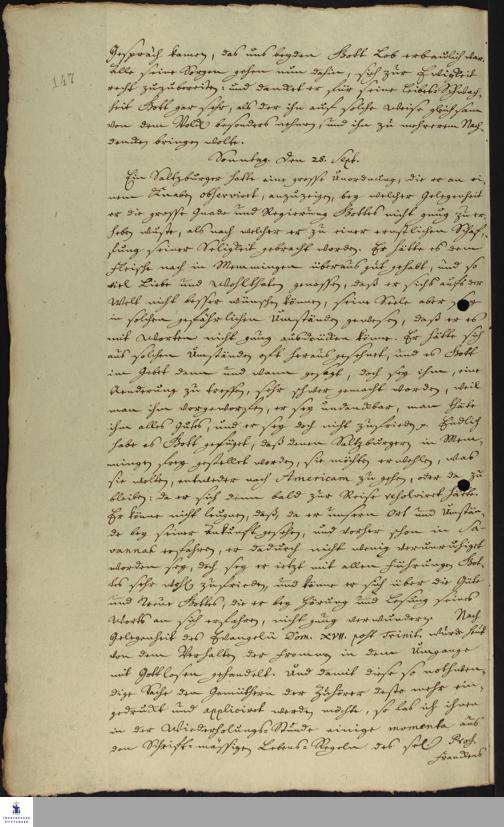 147
Gespräch kamen, das uns beyden Gott Lob erbaulich war.
Alle seine Sorgen gehen nun dahin, sich zur Ewigkeit
recht zuzubereiten; und dancket er für seine Leibes-Schwach-
heit Gott gar sehr, als der ihn auf solche Weise gleichsam
von dem Volck besonders nehmen, und ihn zu mehrerem Nach-
dencken bringen wolte.
Sonntag. Den 28. Sept.
Ein Saltzburger hatte eine grosse Unordnung, die er an ei-
nem Knaben observirt, anzuzeigen, bey welcher Gelegenheit
er die grosse Gnade und Regierung Gottes nicht gnug zu er-
heben wuste, als nach welcher er zu einer ernstlichen Schaf-
fung seiner Seligkeit gebracht worden. Er hätte es dem
Fleische nach in Memmingen überaus gut gehabt, und so
viel Liebe und Wohlthaten genossen, daß er sichs auf der
Welt nicht besser wünschen können, seine Seele aber sey
in solchen gefährlichen Umständen gewesen, daß er es
mit Worten nicht gnug ausdrücken könne. Er hätte sich
aus solchen Umständen oft heraus gesehnet, und es Gott
im Gebet dann und wann gesagt, doch sey ihm, eine
Aenderung zu treffen, sehr schwer gemacht worden, weil
man ihm vorgeworffen, er sey undanckbar, man thäte
ihm alles Gutes, und er sey doch nicht zufrieden. Endlich
habe es Gott gefüget, daß denen Saltzburgern in Mem-
mingen frey gestellet worden, sie möchten erwehlen, was
sie wolten, entweder nach Americam zu gehen, oder da zu
bleiben: da er sich denn bald zur Reise resolviret hätte.
Er könne nicht leugnen, daß, da er unsern Ort und Umstän-
de bey seiner Ankunft gesehen, und vorher schon in Sa-
vannah erfahren, er dadurch nicht wenig verunruhiget
worden sey, doch sey er ietzt mit allen Führungen Got-
tes sehr wohl zufrieden, und könne er sich über die Güte
und Treue Gottes, die er bey Hörung und Lesung seines
Worts an sich erfahren, nicht gnug verwundern. Nach
Gelegenheit des Evangelii Dom. XVII. post Trinit. wurde heut
von dem Verhalten der Frommen in dem Umgange
mit Gottlosen gehandelt. Und damit diese so nothwen-
dige Sache den Gemüthern der Zuhörer desto mehr ein-
gedruckt und appliciret werden möchte, so las ich ihnen
in der Wiederholungs-Stunde einige momenta aus
den Schrift-mässigen Lebens-Regeln des sel. Prof.
Franckens
FRANCKESCHE
STIFTUNGEN